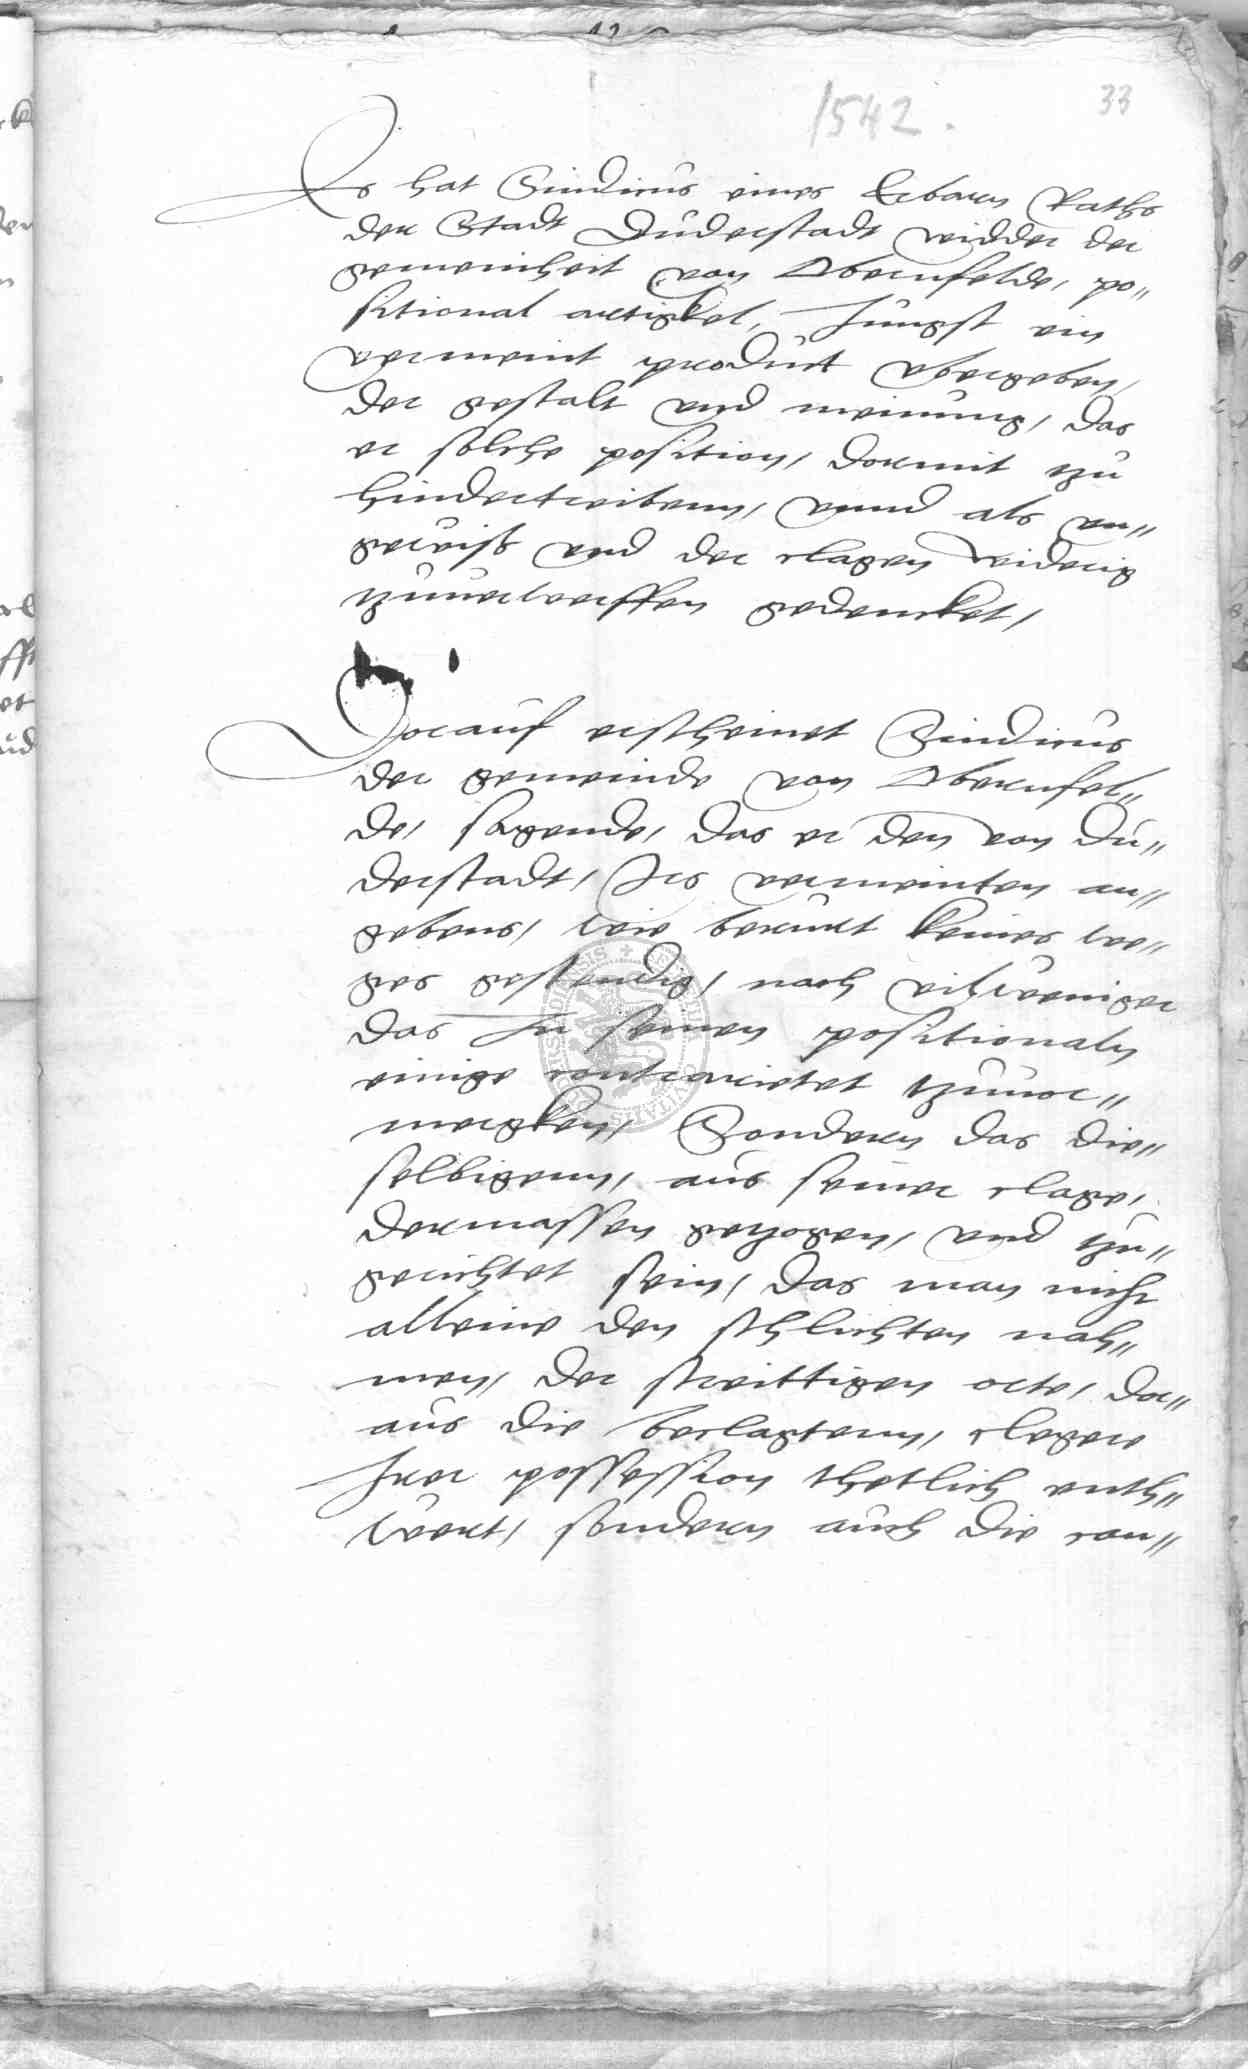 1542.
33
Es hat Sindicus eines Erbarn Raths
der Stadt Duderstadt widder der
gemeinheit von Obernfelde, po"
sitional artickel, Jungst ein
vermeint product vbergeben,
der gestalt vnd meinung, das
er solche position, darmit zu
hindertreibenn, vnnd als vn"
gewiß vnd der clagen widerig
zuuorwerffen gedencket,
Dorauf erscheinet Sindicus
der gemeinde von Obernfel"
de, sagende, das er den von Du"
derstadt, Irs vermeinten an"
gebens, wie berurt keines we"
ges gestendig, noch viehweniger
das In seinen positionaln
einige contrarietet zuuor"
mercken, Sondern das die"
selbigenn, aus seiner clage,
dermassen gezogen, vnd zu"
gerichtet sein, das man nicht
alleine den schlichten nah"
men, der streittigen orte, dar"
aus die beclagtenn, clegere
Irer possession thetlich enth"
wert, sondern auch die con"
SIGILLUM CIVITATIS DUDERSTADENSIS